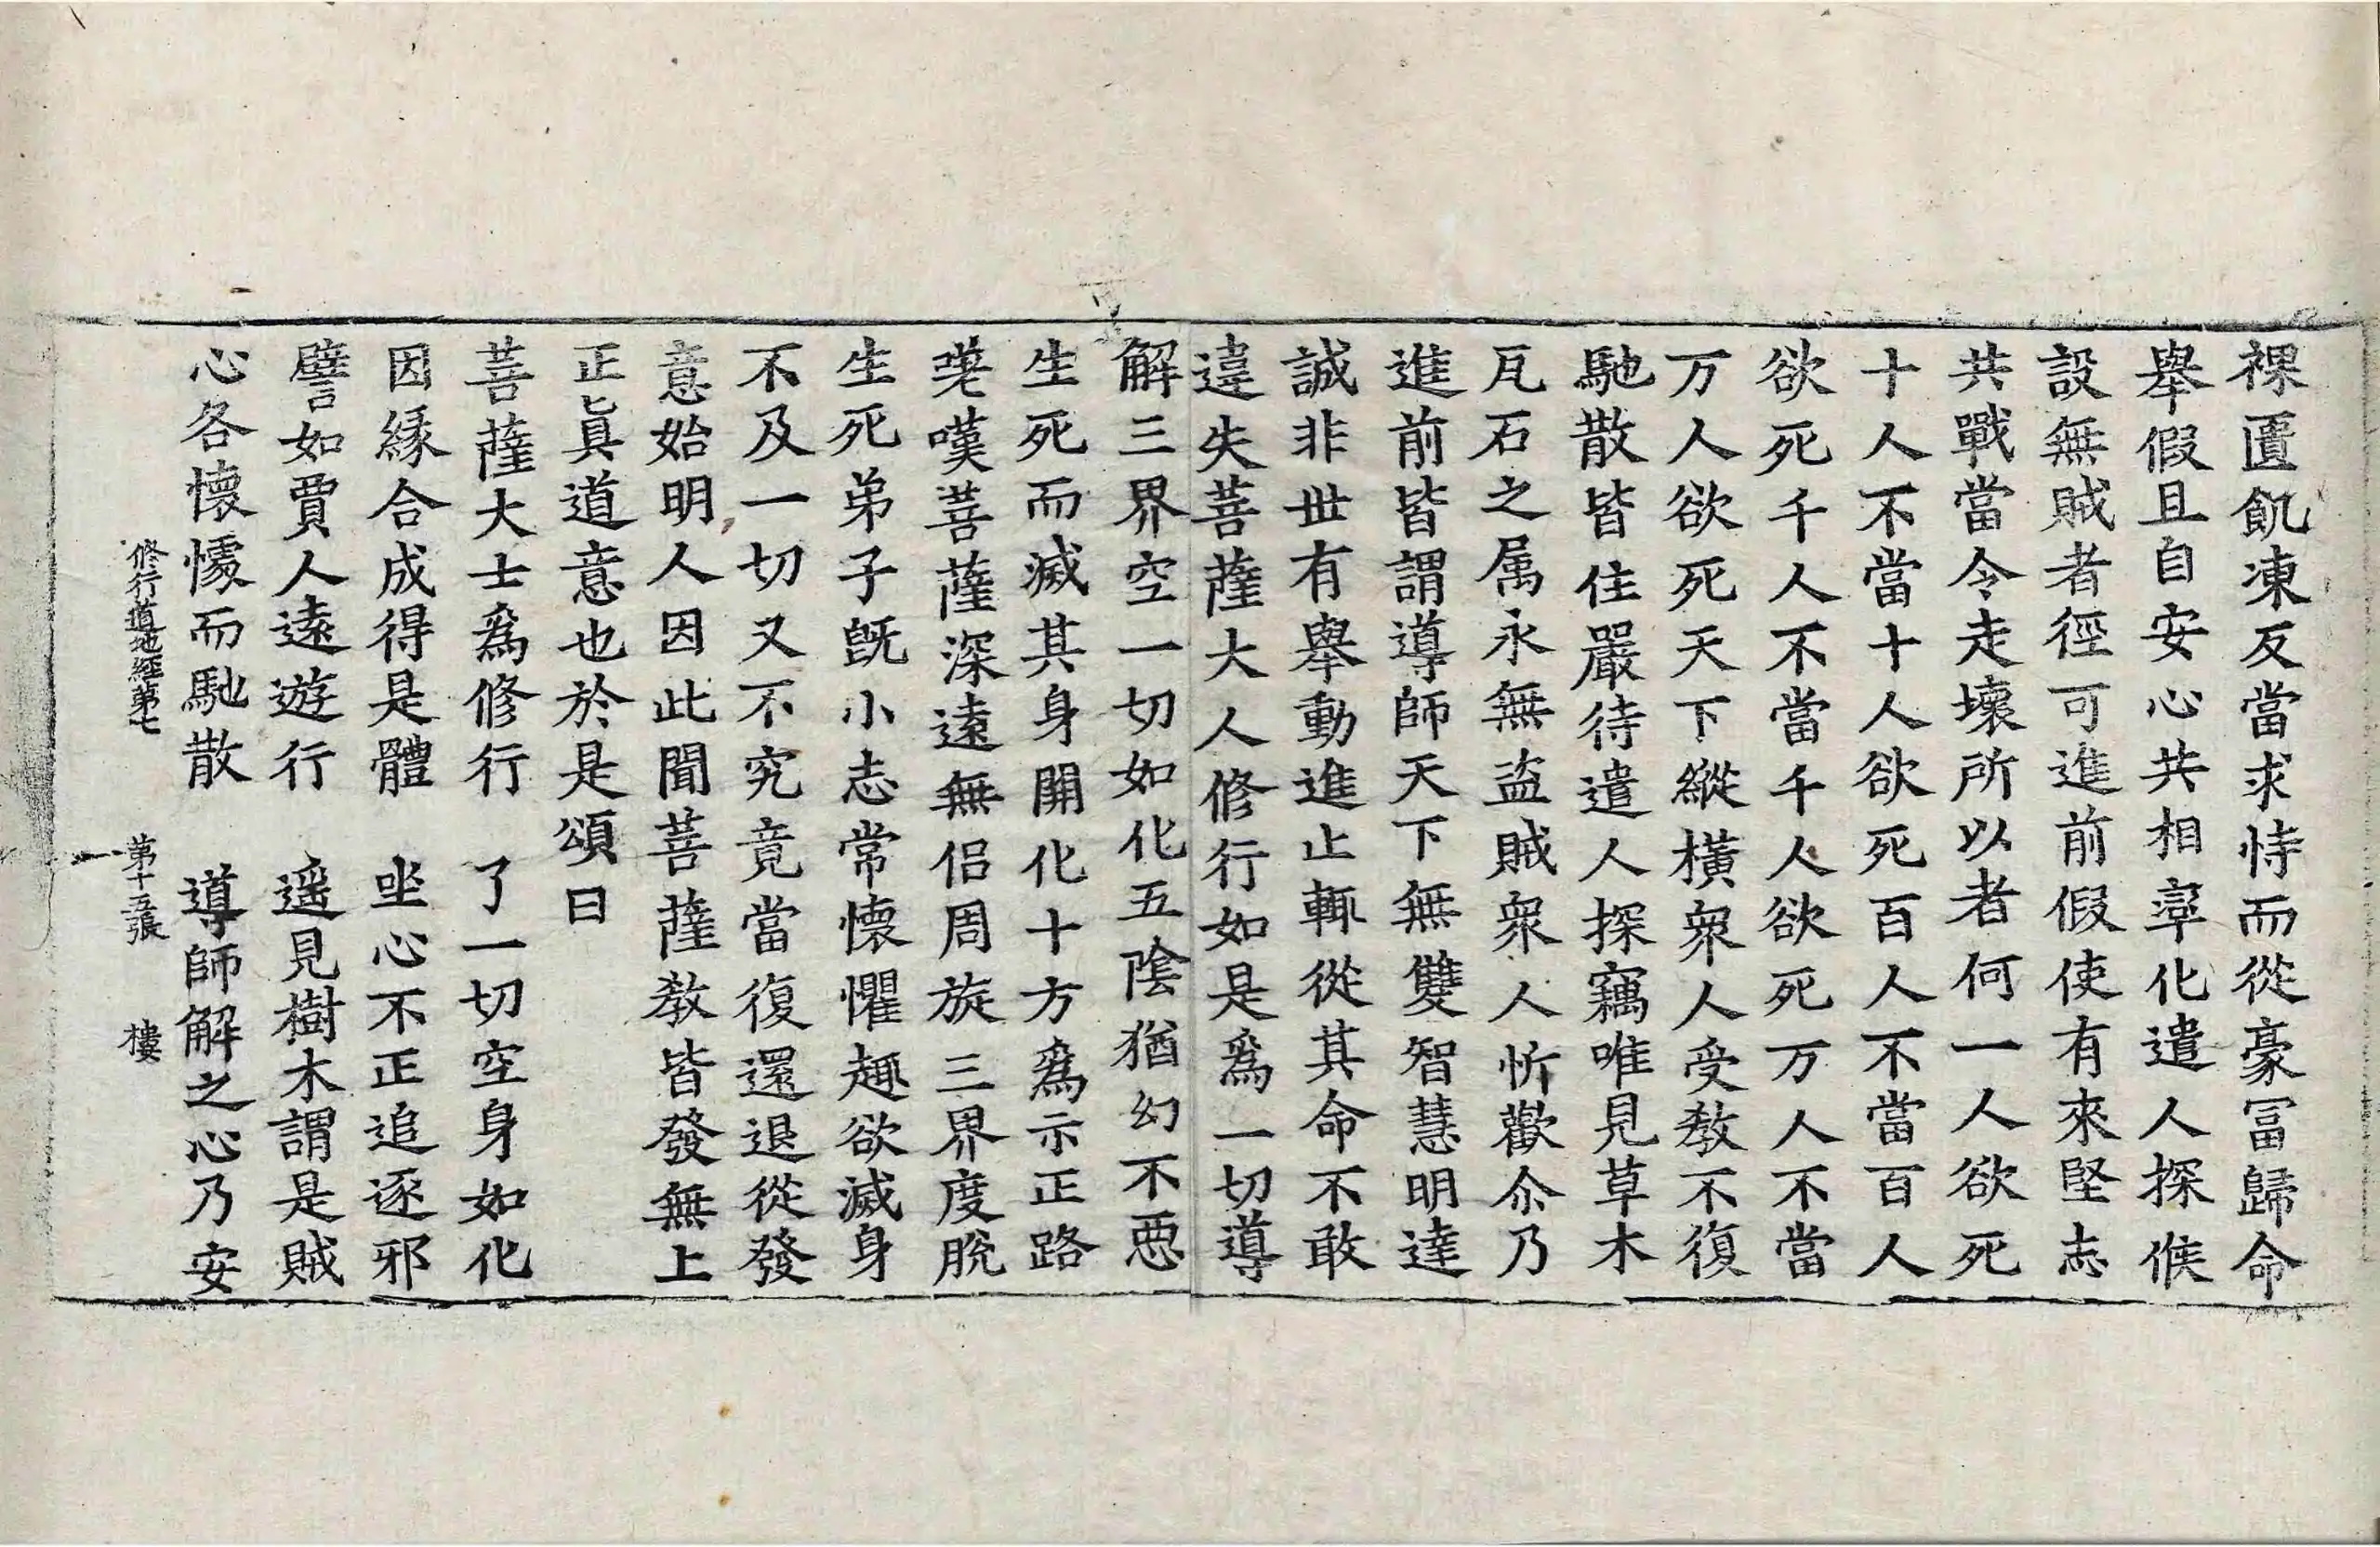 裸匱飢凍反當求恃而從豪冨歸命
舉假且自安心共相率化遣人探候
設無賊者徑可進前假使有來堅志
共戰當令走壞所以者何一人欲死
十人不當十人欲死百人不當百人
欲死千人不當千人欲死万人不當
万人欲死天下縱橫衆人受教不復
馳散皆住嚴待遣人探竊唯見草木
瓦石之属永無盗賊衆人忻歡尒乃
進前皆謂導師天下無雙智慧明達
誠非世有舉動進止輒從其命不敢
違失菩薩大人修行如是爲一切導
解三界空一切如化五陰猶幻不惡
生死而滅其身開化十方爲示正路
嘆菩薩深遠無侣周旋三界度脫
生死弟子旣小志常懷懼趣欲滅身
不及一切又不究竟當復還退從發
意始明人因此聞菩薩教皆發無上
正眞道意也於是頌曰
菩薩大士爲修行　了一切空身如化
因緣合成得是體　坐心不正追逐邪
譬如賈人遠遊行　遥見樹木謂是賊
心各懷懅而馳散　導師解之心乃安
修行道地經第七　第十五張　樓